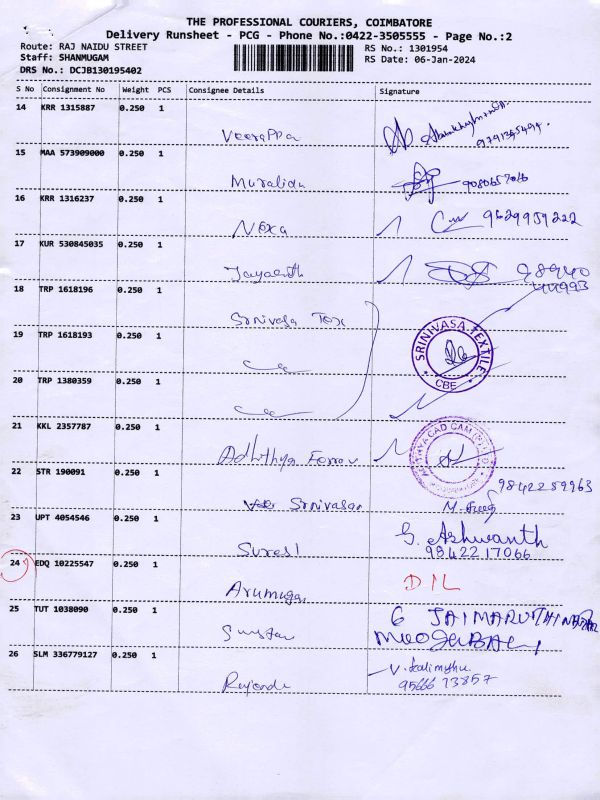 THE PROFESSIONAL COURIERS, COIMBATORE
Delivery Runsheet - PCG - Phone No.:0422-3505555 - Page No.:2
Route: RAJ NAIDU STREET
RS No.: 1301954
Staff: SHANMUGAM
RS Date: 06-Jan-2024
DRS No.: DCJB130195402
S No Consignment No Weight PCS Consignee Details Signature
14 KRR 1315887 0.250 1
Veerappa
15 MAA 573909000 0.250 1
9080657066
16 KRR 1316237 0.250 1
Nexa 9629959222
17 KUR 530845035 0.250 1
Jayaenth 98940
44993
18 TRP 1618196 0.250 1
Srinivasa Tex
19 TRP 1618193 0.250 1
SRINIVASA TEXTILE
CBE
20 TRP 1380359 0.250 1
21 KKL 2357787 0.250 1
CAD CAM
22 STR 190091 0.250 1
Srinivasan 9842259963
23 UPT 4054546 0.250 1
G. Ashwanth
Suresh 9842217066
24 EDQ 10225547 0.250 1
Arumugam DIL
25 TUT 1038090 0.250 1
6 JAIMARUTHINAGAR
26 SLM 336779127 0.250 1
V. Kalimuthu
9566673857